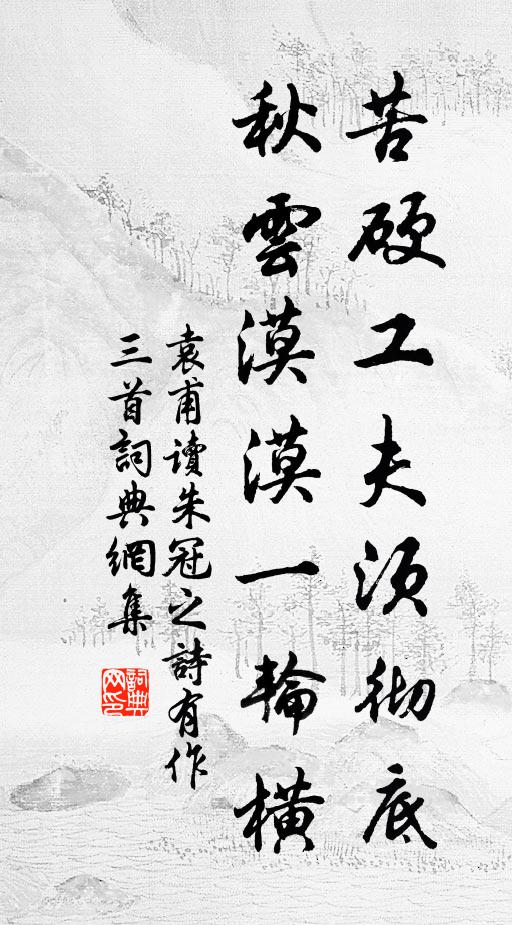 苦硬工夫須彻底
秋雲漠漠一輪橫
袁甫讀朱冠之詩有作
三首詞典網集
詞典
网印